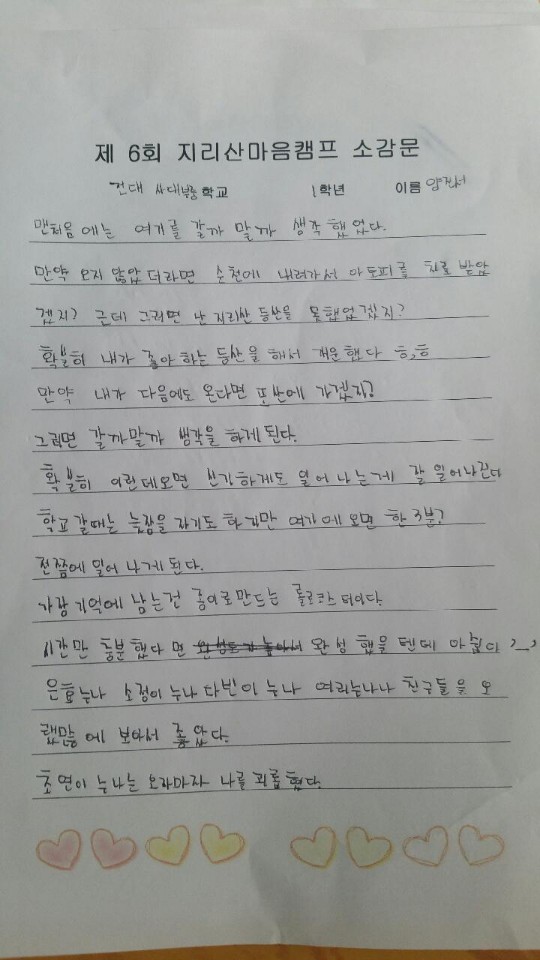 제 6회 지리산마음캠프 소감문
건대 사대부중 학교 1학년 이름
맨처음에는 여기를 갈까 말까 생각했었다.
만약 오지 않았더라면 순천에 내려가서 아토피를 치료 받았
겠지? 근데 그러면 난 지리산 등산을 못했었겠지?
확불히 내가 좋아하는 등산을 해서 개운했다 ㅎ,ㅎ
만약 내가 다음에도 온다면 또산에 가겠지?
그러면 갈까말까 생각을 하게된다.
확불히 이런데오면 신기하게도 일어나는게 잘 일어나진다
학교갈때는 늦잠을 자기도 하지만 여기에 오면 한 3분?
전쯤에 일어나게된다.
가장기억에 남는건 종이로만드는 롤로코스터이다.
시간만 충분했다면 완성했을텐데 아쉽다
은효누나 소정이누나 다빈이누나 여러누나나 친구들을 오
랬많에 보아서 좋았다.
초연이누나는 오라마자 나를 괴롭혔다.